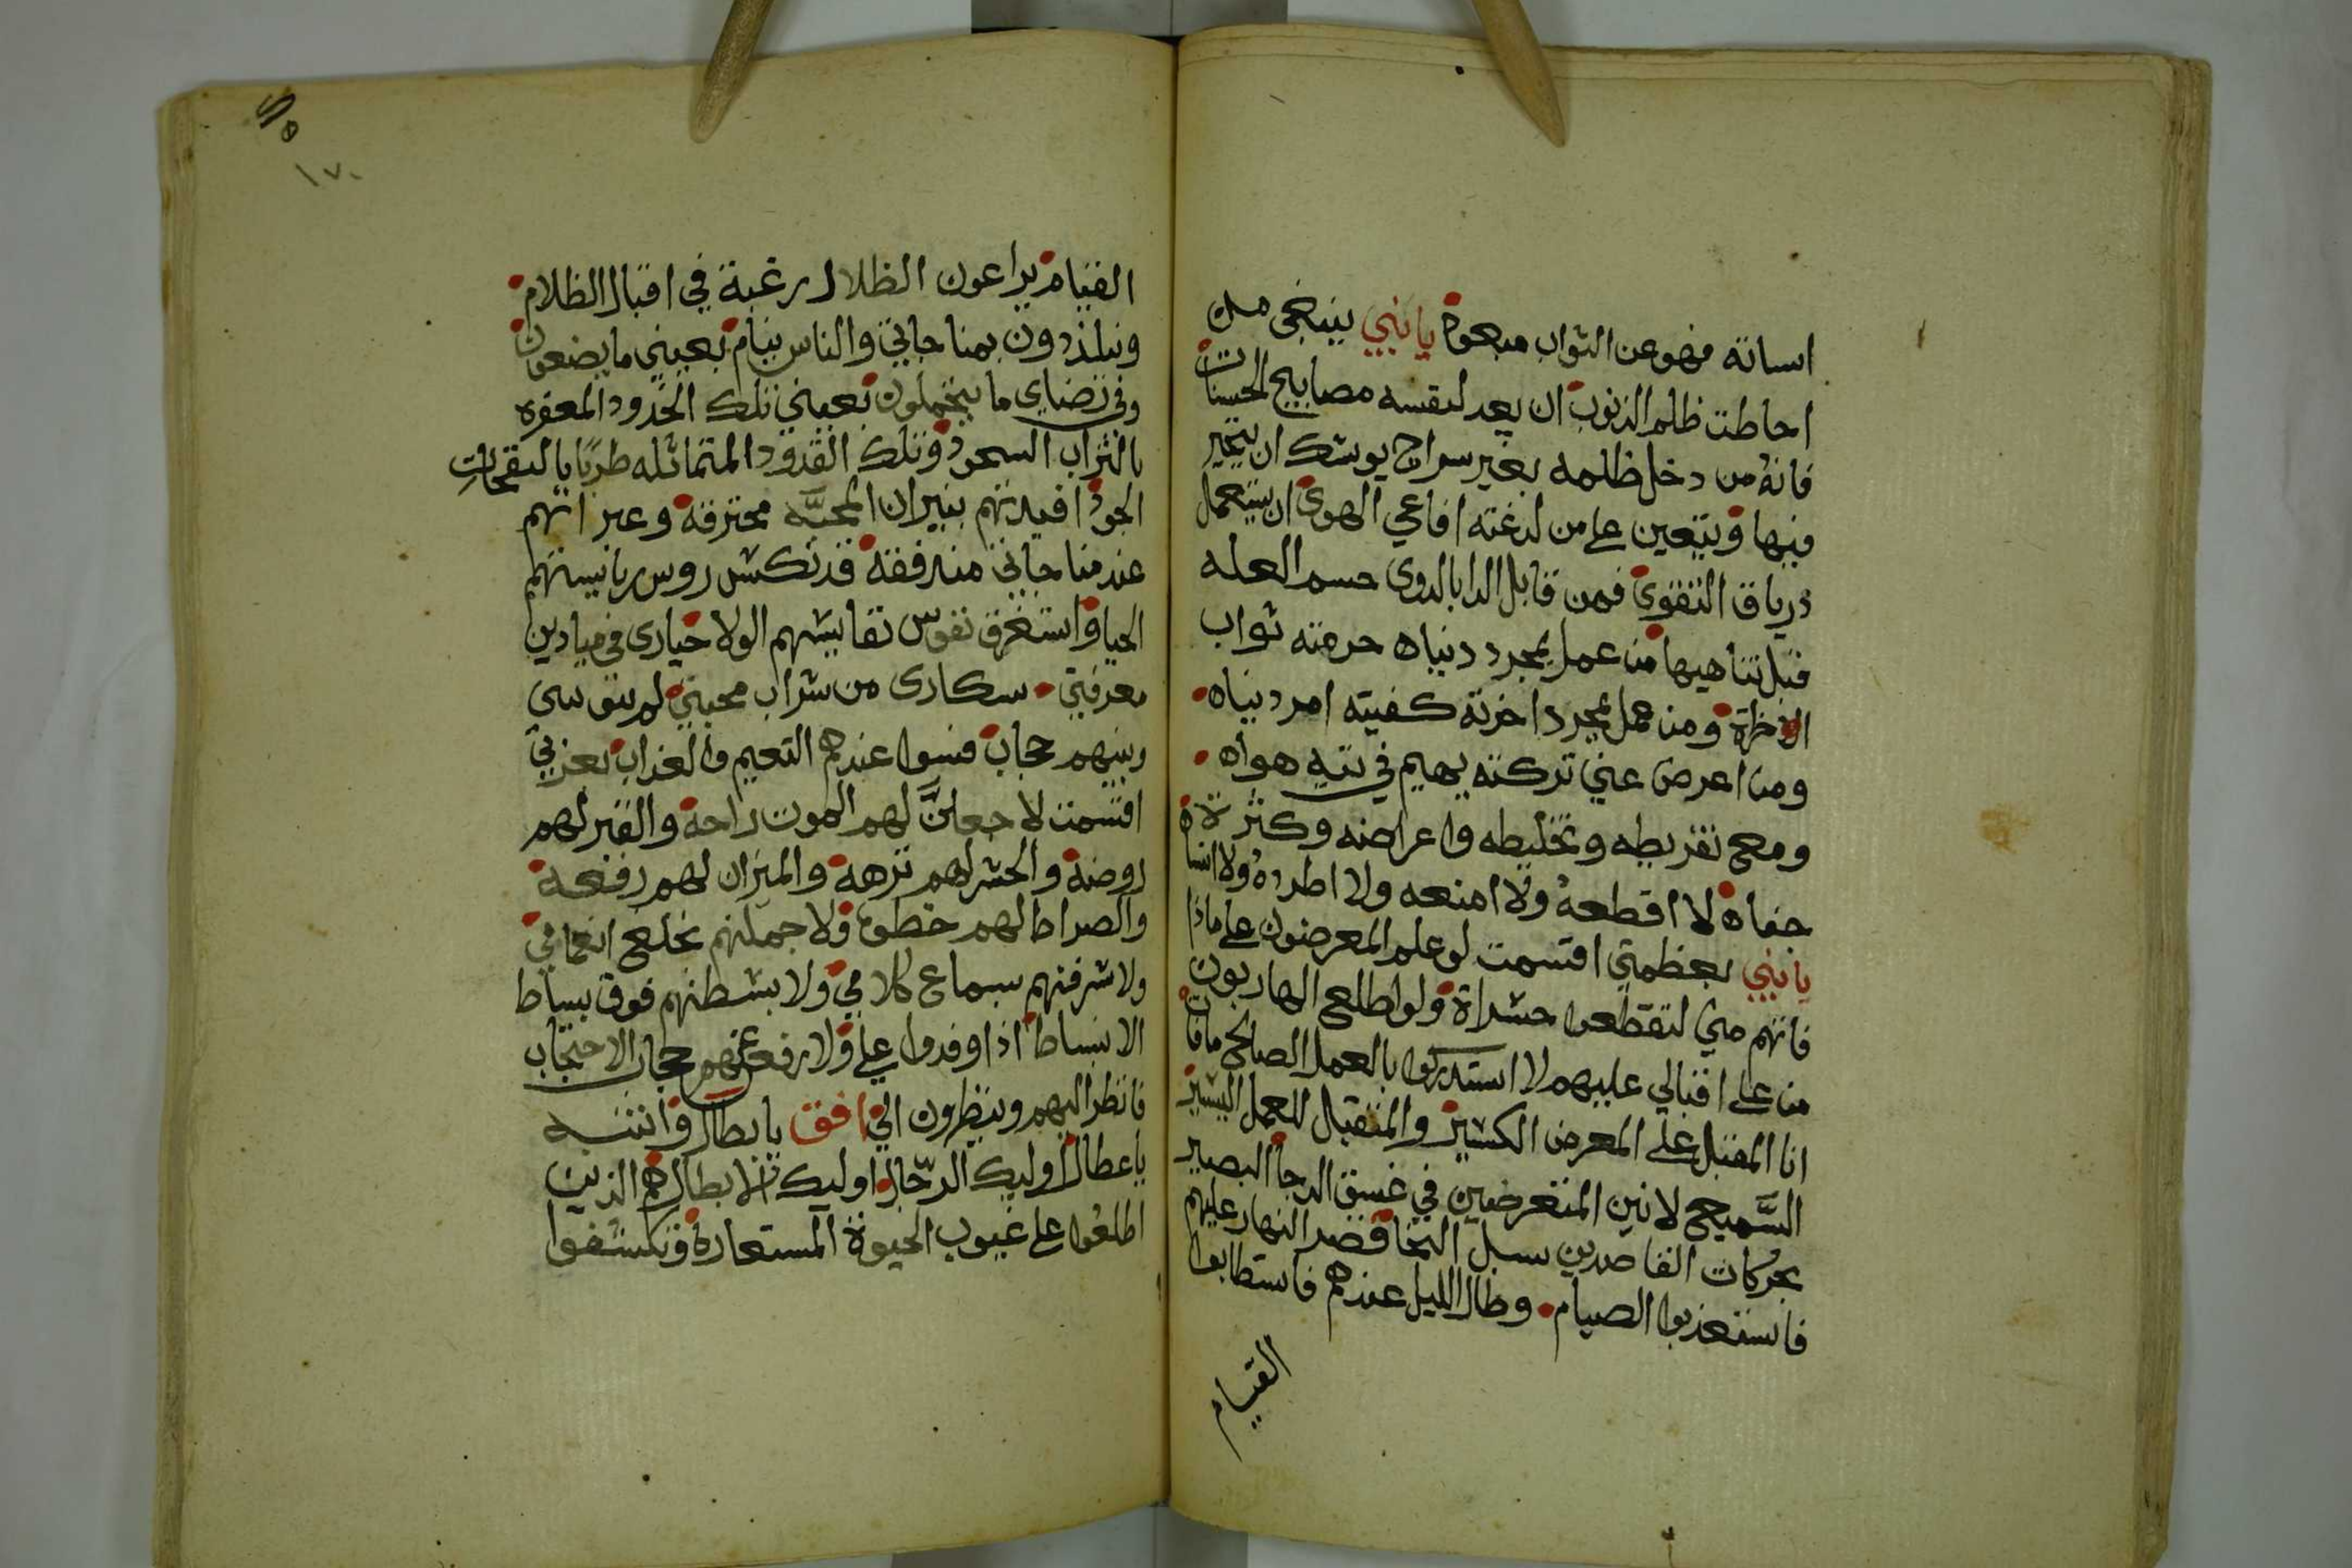 اسانه فهو عن الثواب مبعود يا بني ينبغي من
احاطت ظلم الذنوب ان يعد لنفسه مصابيح الحسنات
فانه من دخل ظلمه بغير سراج يوشك ان يتحير
فيها ويتعين على من لدغته افاعي الهوى ان يستعمل
درياق التقوى فمن قابل الدا بالدوى حسم العله
قبل تناهيها من عمل لمجرد دنياه حرمته ثواب
الاخرة ومن عمل لمجرد اخرته كفيته امر دنياه
ومن اعرض عني تركته يهيم في تيه هواه
ومع تفريطه وتخليطه واعراضه وكثرة
جفاه لا اقطعه ولا امنعه ولا اطرده ولا انساه
يا بني بعظمتي اقسمت لو علم المعرضون على ماذا
فاتهم مني لتقطعوا حسراة ولو اطلع الهاربون
من على اقبالي عليهم لا استدركوا بالعمل الصالح ما فات
انا المقبل على المعرض الكسير والمتقبل للعمل اليسير
السميع لانين المتعرضين في غسق الدجا البصير
بحركات القاصدين سبل النجا قصر النهار عليهم
فاستعذبوا الصيام وطال الليل عندهم فاستطابوا
القيام
١٧٠
القيام يراعون الظلال رغبة في اقبال الظلام
ويتلذذون بمناجاتي والناس نيام بعيني ما يصنعون
وفي رضاي ما يتحملون بعيني تلك الخدود المعفره
بالتراب السجود وتلك القدود المتمائله طربا بالنفحات
الجود افيدتهم بنيران المحبه محترقة وعبراتهم
عند مناجاتي مندفقة قد نكس روس رياستهم
الحيا واستغرق نفوس نفايسهم الولا حيارى في ميادين
معرفتي سكارى من شراب محبتي لم يبق بيني
وبينهم حجاب فنسوا عندهم النعيم والعذاب بعزتي
اقسمت لاجعلن لهم الموت راحة والقبر لهم
روضة والحشر لهم نزهة والميزان لهم رفعة
والصراط لهم خطوة ولاجملنهم بخلع انعامي
ولاشرفنهم بسماع كلامي ولابسطنهم فوق بساط
الانبساط اذا وفدوا علي ولارفعن عنهم حجاب الاحتجاب
فانظر اليهم وينظرون الي افق يا بطال وانتبه
يا عطال اوليك الرجال اوليك الابطال هم الذين
اطلعوا على غيوب الحيوة المستعارة وتكشفوا